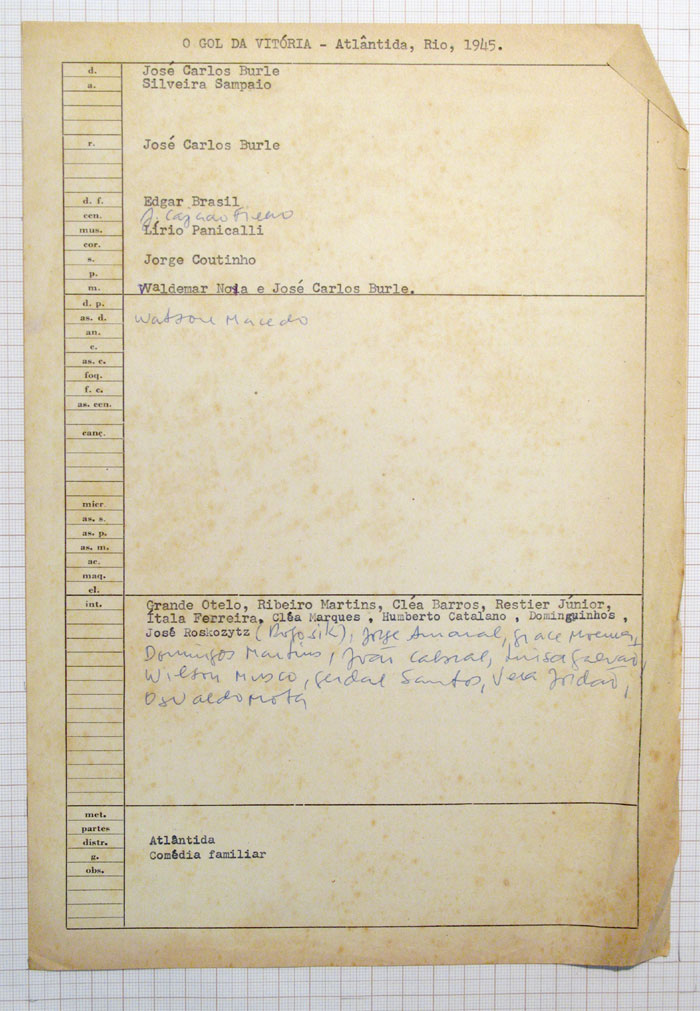 O GOL DA VITÓRIA - Atlântida, Rio, 1945.
d. José Carlos Burle
a. Silveira Sampaio
r. José Carlos Burle
d. f. Edgar Brasil
cen. J. Cajado Filho
mus. Lírio Panicalli
cor.
s. Jorge Coutinho
p.
m. Waldemar Noia e José Carlos Burle.
d. p.
as. d. Watson Macedo
an.
c.
as. c.
foq.
f. c.
as. cen.
canç.
micr.
as. s.
as. p.
as. m.
ac.
maq.
el.
int. Grande Otelo, Ribeiro Martins, Cléa Barros, Restier Júnior,
Ítala Ferreira, Cléa Marques , Humberto Catalano , Dominguinhos ,
José Roskozytz (Rofosik), Jorge Amaral, Grace Moema,
Domingos Martins, João Cabral, Luisa Galvão,
Wilson Musco, Gerdal Santos, Vera Jordão,
Osvaldo Mota
met.
partes
distr. Atlântida
g. Comédia familiar
obs.